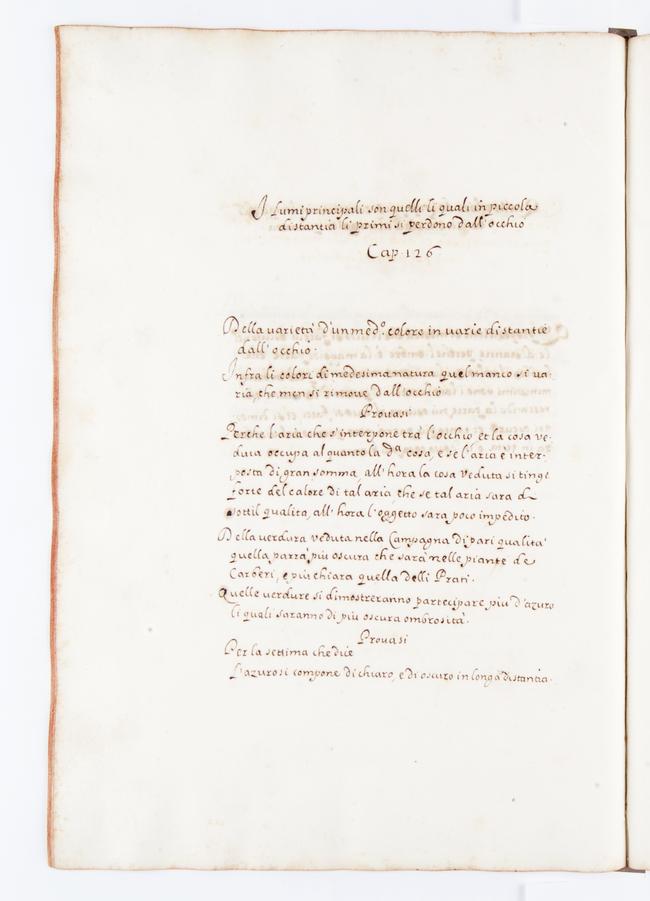 I Lumi principali son quelli li quali in piccola
distantia li primi si perdono dall'occhio
Cap. 126
Della varietà d'un med.º colore in varie distantie
dall'occhio.
Infra li colori di medesima natura quel manco si va=
ria, che men si rimove dall'occhio
Provasi
Perche l'aria che s'interpone trà l'occhio et la cosa ve=
duta occupa alquanto la dª cosa, e se l'aria è inter=
posta di gran somma, all'hora la cosa veduta si tinge
forte del calore di tal aria, che se tal aria sara di
sottil qualita, all'hora l'oggetto sarà poco impedito.
Della verdura veduta nella Campagna di pari qualita
quella parrà più oscura che sarà nelle piante de
Carberi, e più chiara quella delli Prati.
Quelle verdure si dimostreranno partecipare più d'azuro
li quali saranno di più oscura ombrosità.
Provasi
Per la settima che dice
L'azuro si compone di chiaro, e di oscuro in longa distantia.